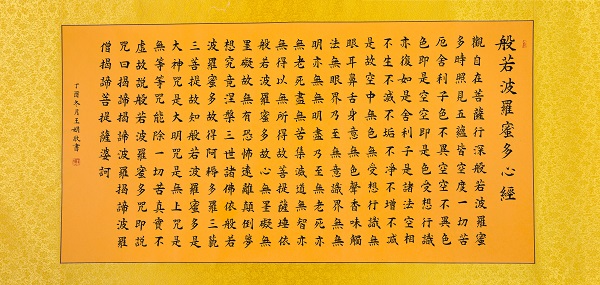 般若波羅蜜多心經
觀自在菩薩行深般若波羅蜜
多時照見五蘊皆空度一切苦
厄舍利子色不異空空不異色
色即是空空即是色受想行識
亦復如是舍利子是諸法空相
不生不滅不垢不淨不增不減
是故空中無色無受想行識無
眼耳鼻舌身意無色聲香味觸
法無眼界乃至無意識界無無
明亦無無明盡乃至無老死亦
無老死盡無苦集滅道無智亦
無得以無所得故菩提薩埵依
般若波羅蜜多故心無罣礙無
罣礙故無有恐怖遠離顛倒夢
想究竟涅槃三世諸佛依般若
波羅蜜多故得阿耨多羅三藐
三菩提故知般若波羅蜜多是
大神咒是大明咒是無上咒是
無等等咒能除一切苦真實不
虛故說般若波羅蜜多咒即說
咒曰揭諦揭諦波羅揭諦波羅
僧揭諦菩提薩婆訶
丁酉冬月王欣書